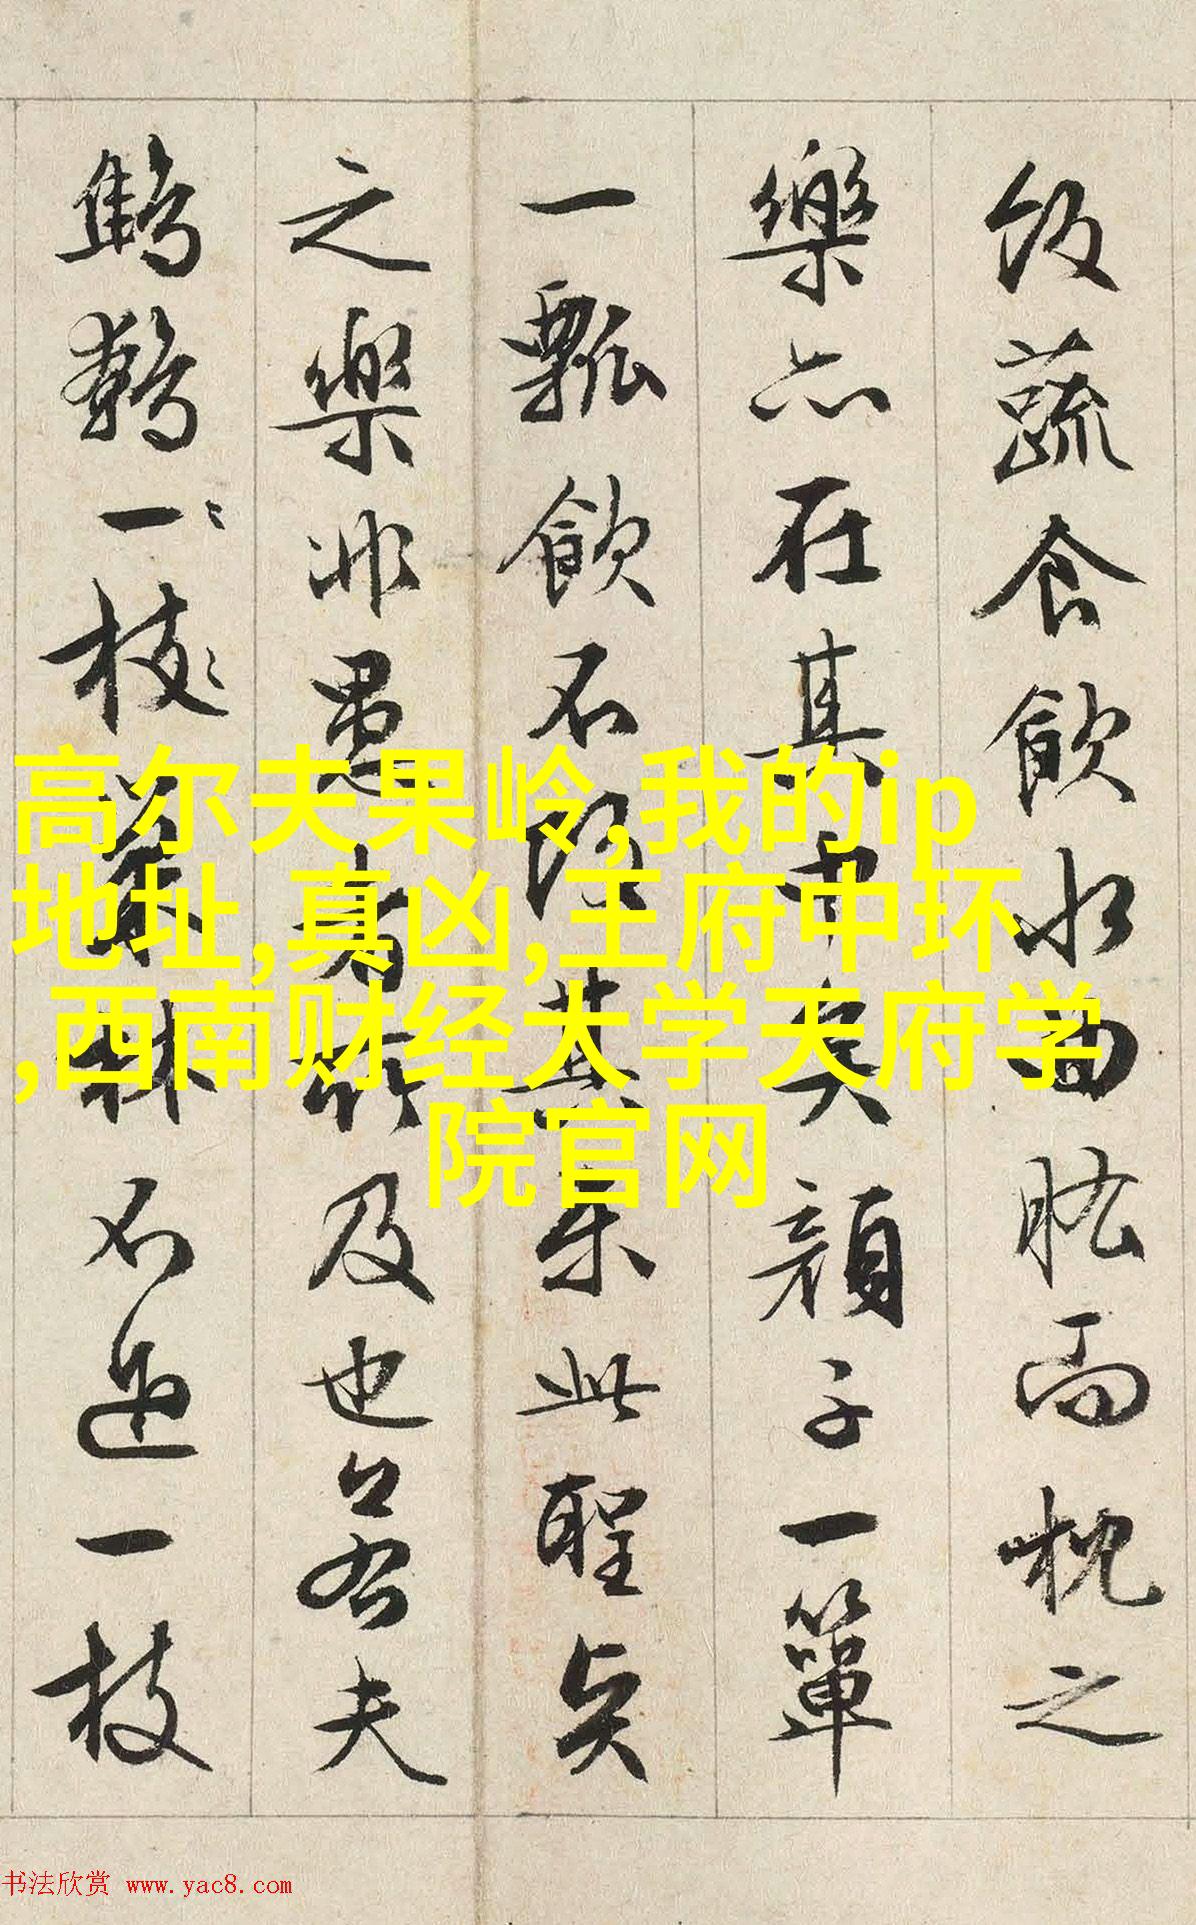 飯蔬食飲水曲肱而枕之
樂亦在其中矣顔子一簞
一瓢飲不改其樂此聖賢
之樂非愚者所及也若夫
鷦鷯一枝巢林不過一枝
高尔夫果岭,我的ip
地址,真凶,王府中环
,西南财经大学天府学
院官网
书法欣赏 www.yac8.com